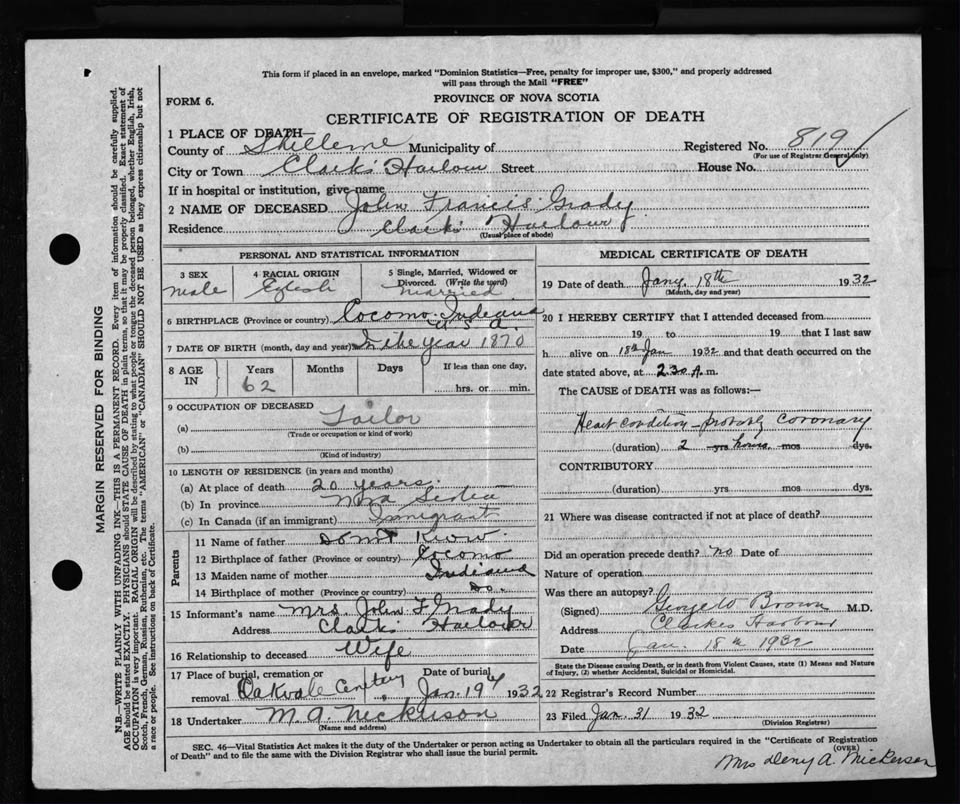 This form if placed in an envelope, marked "Dominion Statistics—Free, penalty for improper use, $300," and properly addressed
will pass through the Mail "FREE"
FORM 6.
PROVINCE OF NOVA SCOTIA
CERTIFICATE OF REGISTRATION OF DEATH
1 PLACE OF DEATH—
County of Municipality of Registered No. 819
(For use of Registrar General only)
City or Town Clark's Harbour Street House No.
If in hospital or institution, give name
2 NAME OF DECEASED John Francis Grady
Residence Clark's Harbour
(Usual place of abode)
PERSONAL AND STATISTICAL INFORMATION
3 SEX 4 RACIAL ORIGIN 5 Single, Married, Widowed or Divorced. (Write the word)
Male married
6 BIRTHPLACE (Province or country) Cocomo Indiana
U S A.
7 DATE OF BIRTH (month, day and year) In the year 1870
8 AGE IN Years Months Days If less than one day,
62 hrs. or min.
9 OCCUPATION OF DECEASED
(a) Tailor
(Trade or occupation or kind of work)
(b)
(Kind of industry)
10 LENGTH OF RESIDENCE (in years and months)
(a) At place of death 20 years.
(b) In province
(c) In Canada (if an immigrant) Immigrant
Parents
11 Name of father Dont Know.
12 Birthplace of father (Province or country) Cocomo
13 Maiden name of mother Indiana
14 Birthplace of mother (Province or country) Do.
15 Informant's name Mrs. John F Grady
Address Clarks Harbour
16 Relationship to deceased Wife
17 Place of burial, cremation or removal Oakvale Date of burial Jan. 19 1932
18 Undertaker M. A. Nickerson
(Name and address)
MEDICAL CERTIFICATE OF DEATH
19 Date of death Jany. 18th 1932
(Month, day and year)
20 I HEREBY CERTIFY that I attended deceased from
19 to 19 that I last saw
h alive on 18th Jan 1932 and that death occurred on the
date stated above, at 2.30 A.m.
The CAUSE of DEATH was as follows:—
Heart condition – probably coronary
(duration) 2 yrs hours mos dys.
CONTRIBUTORY
(duration) yrs mos dys.
21 Where was disease contracted if not at place of death?
Did an operation precede death? no Date of
Nature of operation
Was there an autopsy?
(Signed) George W Brown M.D.
Address Clarkes Harbour
Date Jan. 18th 1932
State the Disease causing Death, or in death from Violent Causes, state (1) Means and Nature
of Injury, (2) whether Accidental, Suicidal or Homicidal.
22 Registrar's Record Number
23 Filed Jan. 31 1932
(Division Registrar)
SEC. 46—Vital Statistics Act makes it the duty of the Undertaker or person acting as Undertaker to obtain all the particulars required in the "Certificate of Registration
of Death" and to file the same with the Division Registrar who shall issue the burial permit.
(OVER)
Mrs A. Nickerson
MARGIN RESERVED FOR BINDING
N.B.—WRITE PLAINLY WITH UNFADING INK—THIS IS A PERMANENT RECORD. Every item of information should be carefully supplied.
AGE should be stated EXACTLY. PHYSICIANS should STATE CAUSE OF DEATH in plain terms, so that it may be properly classified. Exact statement of
OCCUPATION is very important. RACIAL ORIGIN will be described by stating to what people or tongue the deceased person belonged, whether English, Irish,
Scotch, French, German, Russian, Ruthenian, etc. The terms "AMERICAN" or "CANADIAN" SHOULD NOT BE USED as they express citizenship but not
a race or people. See instructions on back of Certificate.